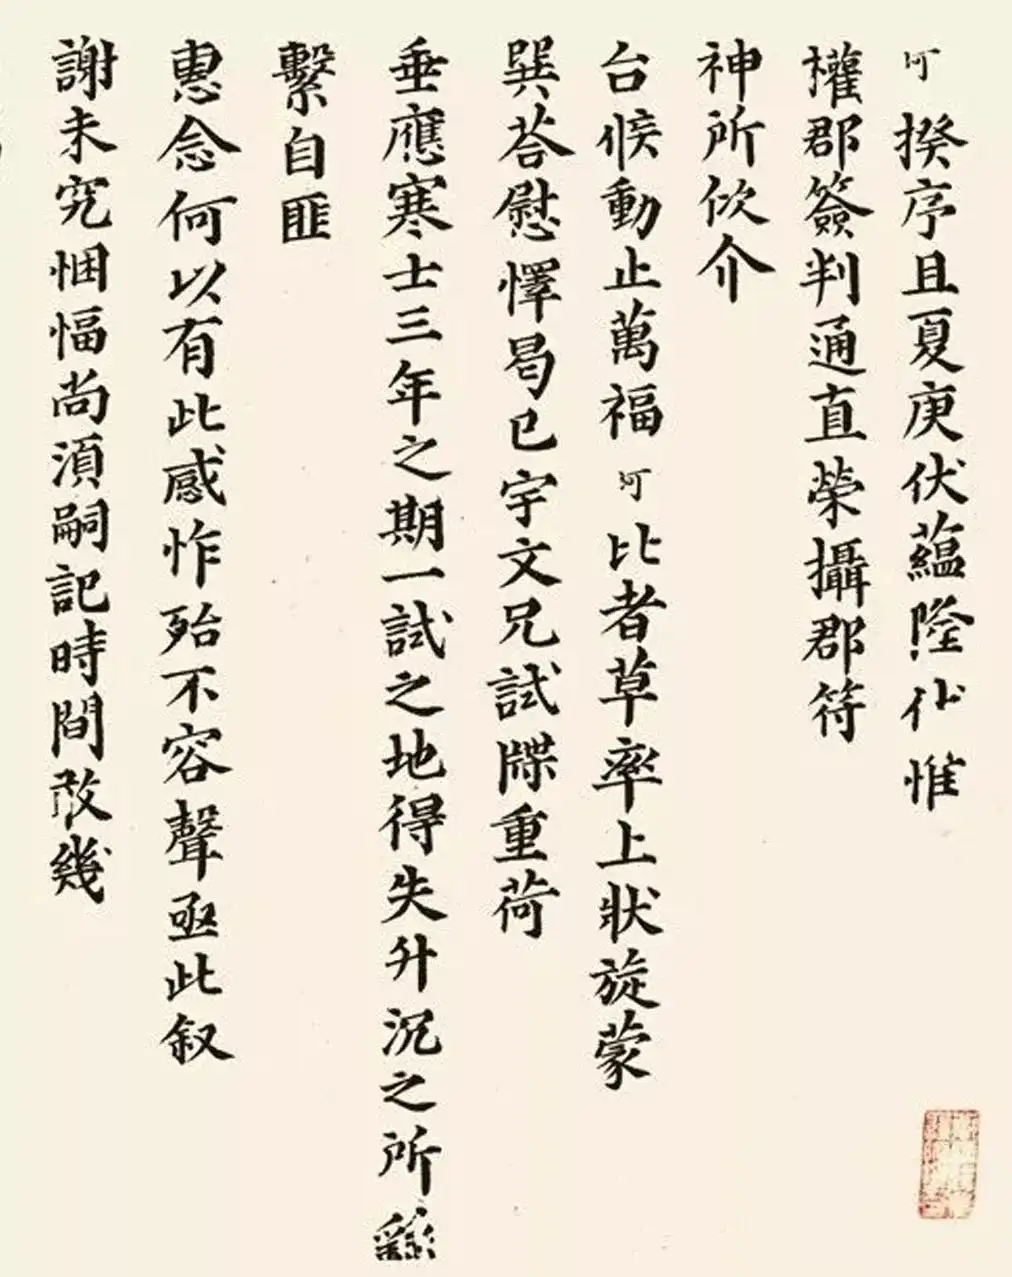 阿揆序且夏庚伏蘊隆仆惟
權郡簽判通直榮攝郡符
神所佽介
台候動止萬福阿比者草率上狀旋蒙
巽荅慰懌曷已宇文兄試牒重荷
垂應寒士三年之期一試之地得失升沉之所繇
繫自匪
惠念何以有此感怍殆不容聲亟此叙
謝未究悃愊尚須嗣記時間敢幾